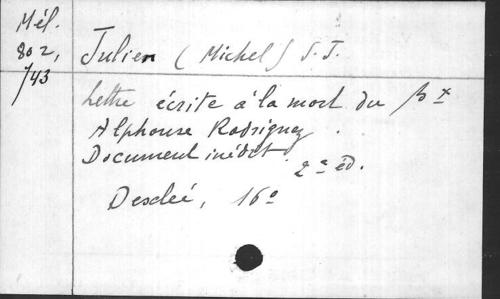 Mél.
802,
743
Julien (Michel) S. J.
Lettre écrite à la mort du Bx
Alphonse Rodriguez.
Document inédit.
2e éd.
Desclée, 16o